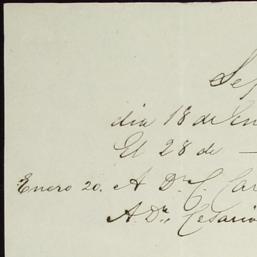 Se
dia 18 de En
El 28 de —
Enero 20. A Dn. C. Car
A. Dn. Cesario